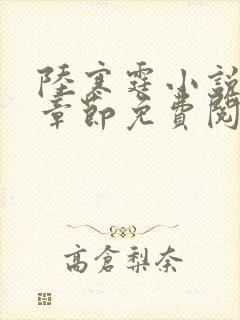 陸寒霆小說
章節免費閱
高倉梨奈